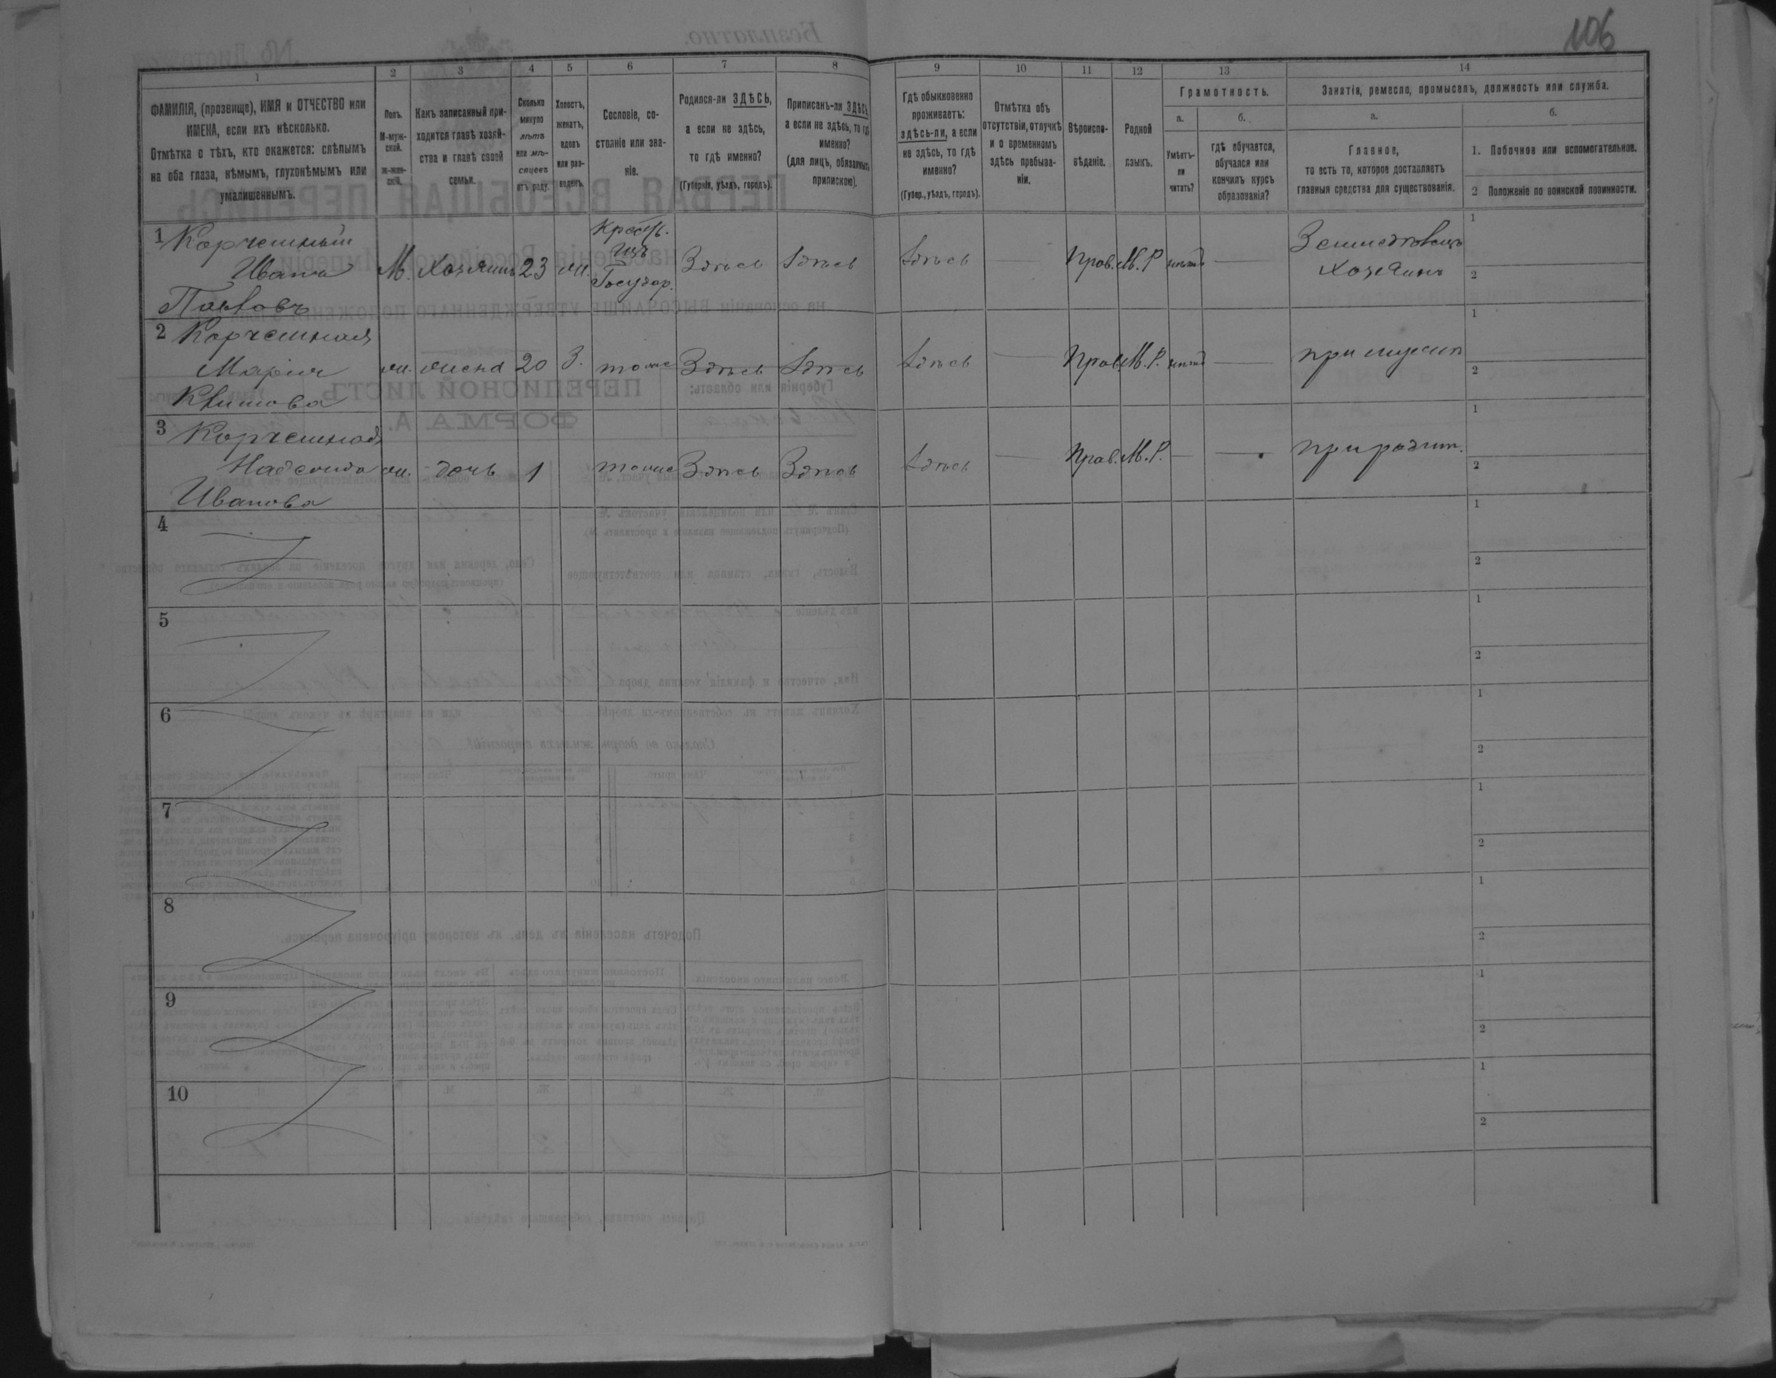 106
1
2
3
4
5
6
7
8
9
10
11
12
13
14
ФАМИЛІЯ, (прозвище), ИМЯ и ОТЧЕСТВО или
ИМЕНА, если ихъ нѣсколько.
Отмѣтка о тѣхъ, кто окажется: слѣпымъ
на оба глаза, нѣмымъ, глухонѣмымъ или
умалишеннымъ.
Полъ.
М-муж-
ской.
Ж-жен-
скій.
Какъ записанный при-
ходится главѣ хозяй-
ства и главѣ своей
семьи.
Сколько
минуло
лѣтъ
или мѣ-
сяцевъ
отъ роду.
Холостъ,
женатъ,
вдовъ
или раз-
веденъ.
Сословіе, со-
стояніе или зва-
ніе.
Родился-ли ЗДѢСЬ,
а если не здѣсь,
то гдѣ именно?
(Губернія, уѣздъ, городъ).
Приписанъ-ли ЗДѢСЬ,
а если не здѣсь, то гдѣ
именно?
(для лицъ, обязанныхъ
припискою).
Гдѣ обыкновенно
проживаетъ:
здѣсь-ли, а если
не здѣсь, то гдѣ
именно?
(Губер., уѣздъ, городъ).
Отмѣтка объ
отсутствіи, отлучкѣ
и о временномъ
здѣсь пребыва-
ніи.
Вѣроиспо-
вѣданіе.
Родной
языкъ.
Грамотность.
а.
Умѣетъ-
ли
читать?
б.
гдѣ обучается,
обучался или
кончилъ курсъ
образованія?
Занятіе, ремесло, промыселъ, должность или служба.
а.
Главное,
то есть то, которое доставляетъ
главныя средства для существованія.
б.
1. Побочное или вспомогательное.
2 Положеніе по воинской повинности.
1 Корчемный
Ивана
М. Хозяинъ 23
Крест.
изъ
Государ.
Здѣсь Здѣсь Здѣсь — Прав. М. Р. —
Хозяинъ
1
2
2 Корчемная
Марія
жена 20 З. тоже Здѣсь Здѣсь Здѣсь — Прав. М. Р. —
1
2
3 Корчемная
Иванова
дочь 1 тоже Здѣсь Здѣсь Здѣсь — Прав. М. Р. — — при родит.
1
2
4
1
2
5
1
2
6
1
2
7
1
2
8
1
2
9
1
2
10
1
2